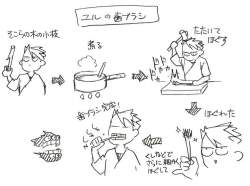 ユルの歯ブラシ
そこらの木の小枝
煮る
たたいて
ほぐす
ドドドド
ほぐれた
くしなどで
さらに細かく
ほぐして
歯ブラシ完成!